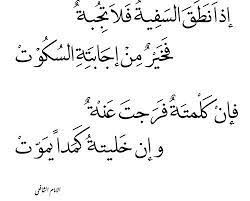 إذا نَطَقَ السَفيهُ فَلاَ تُجِبهُ
فَخَيْرٌ مِنْ إجابَتِهِ السُكُوْتْ
فإن كَلْمتَهُ فَرَجتَ عَنْهُ
وإن خَليتهُ كَمَداً يَموَتْ
الامام الشافعي